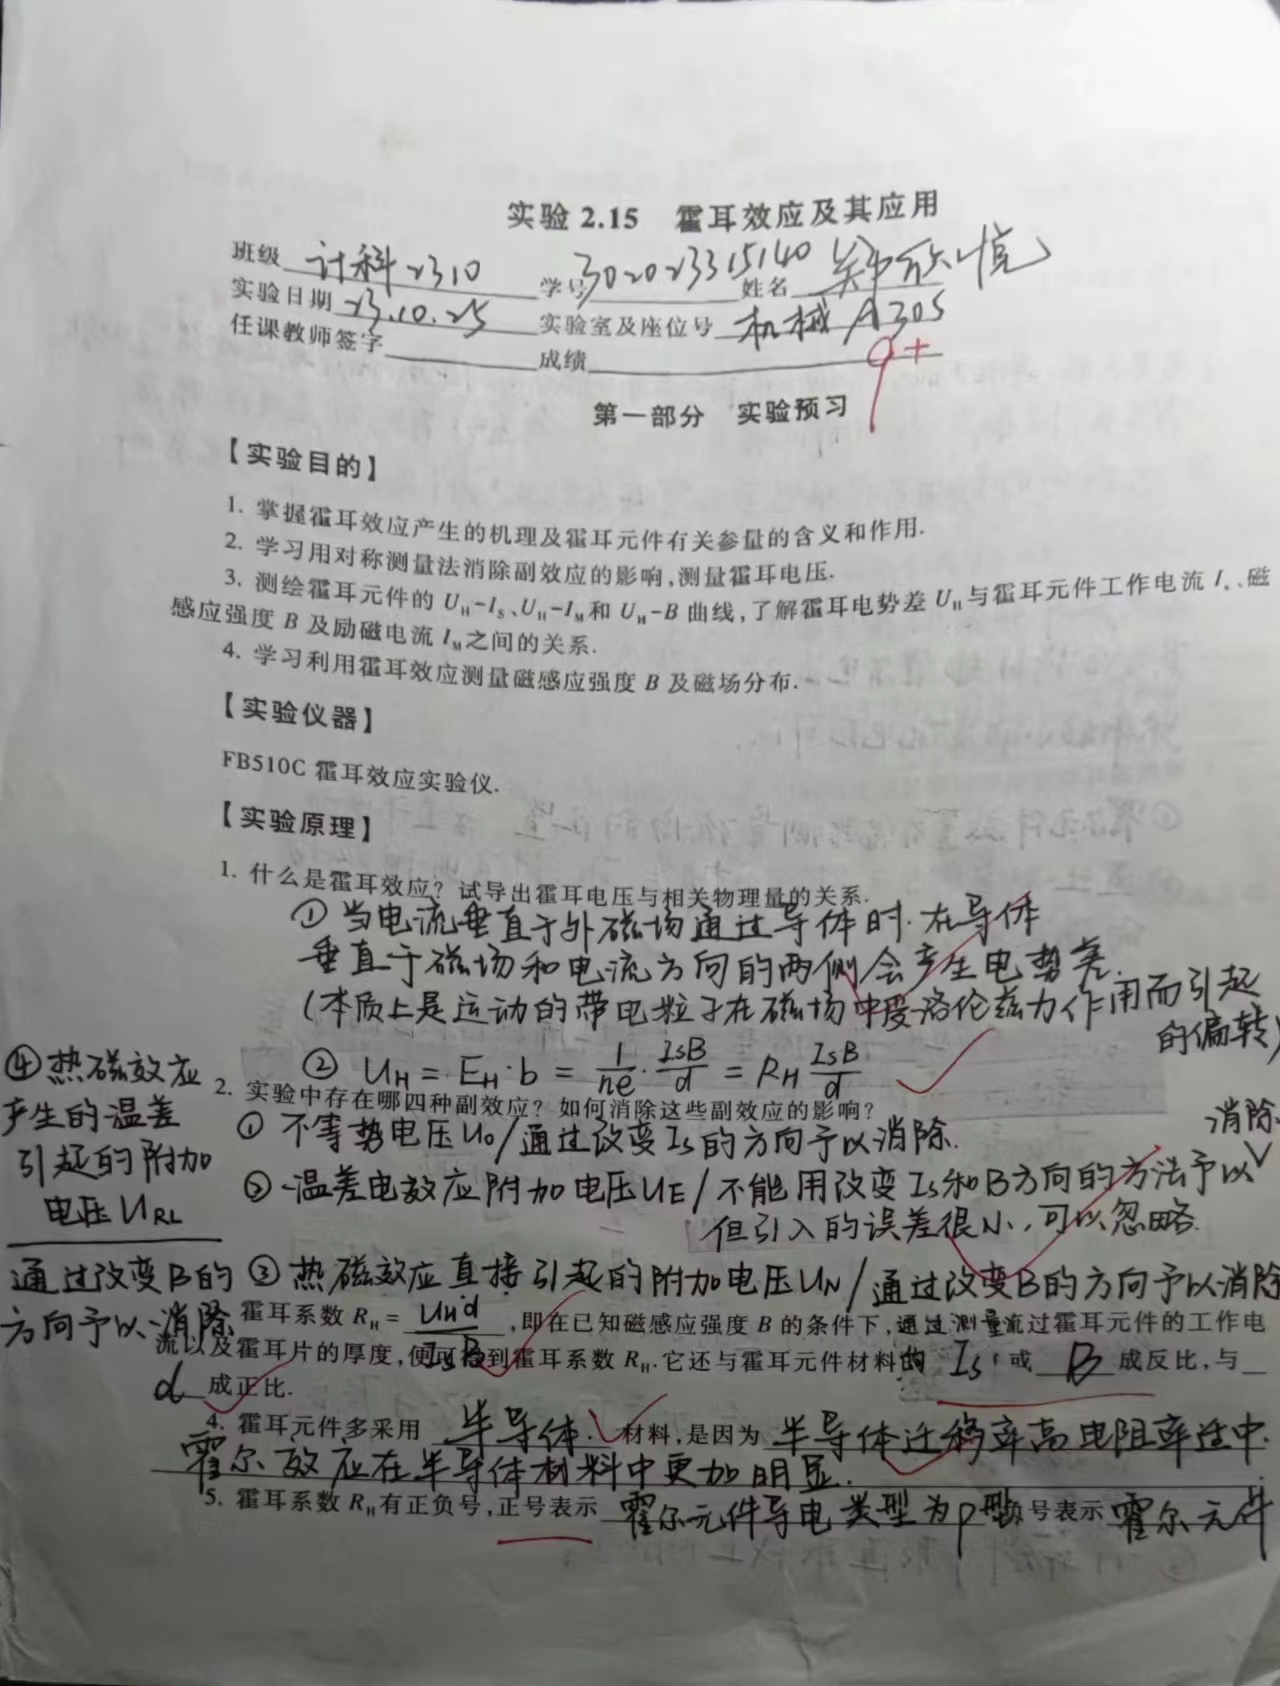 实验 2.15 霍耳效应及其应用
班级 计科2310 学号 302023315140 姓名
实验日期 23.10.25 实验室及座位号 机械 A305
任课教师签字 成绩 9+
第一部分 实验预习
【实验目的】
1. 掌握霍耳效应产生的机理及霍耳元件有关参量的含义和作用.
2. 学习用对称测量法消除副效应的影响,测量霍耳电压.
3. 测绘霍耳元件的 UH-IS、UH-IM 和 UH-B 曲线,了解霍耳电势差 UH 与霍耳元件工作电流 Is、磁
感应强度 B 及励磁电流 IM 之间的关系.
4. 学习利用霍耳效应测量磁感应强度 B 及磁场分布.
【实验仪器】
FB510C 霍耳效应实验仪.
【实验原理】
1. 什么是霍耳效应? 试导出霍耳电压与相关物理量的关系.
① 当电流垂直于外磁场通过导体时.在导体
垂直于磁场和电流方向的两侧会产生电势差.
(本质上是运动的带电粒子在磁场中受洛伦兹力作用而引起
的偏转)
② UH = EH·b = 1/ne · IsB/d = RH IsB/d
2. 实验中存在哪四种副效应? 如何消除这些副效应的影响?
① 不等势电压U0/通过改变Is的方向予以消除.
② 温差电效应附加电压UE/不能用改变Is和B方向的方法予以消除
但引入的误差很小,可以忽略.
③ 热磁效应直接引起的附加电压UN/通过改变B的方向予以消除
④ 热磁效应
产生的温差
引起的附加
电压URL
通过改变B的
方向予以消除
霍耳系数 RH = UH·d/IsB ,即在已知磁感应强度 B 的条件下,通过测量流过霍耳元件的工作电
流以及霍耳片的厚度,便可得到霍耳系数 RH.它还与霍耳元件材料的 Is 或 B 成反比,与
d 成正比.
4. 霍耳元件多采用 半导体 材料,是因为 半导体迁移率高电阻率适中.
霍尔效应在半导体材料中更加明显.
5. 霍耳系数 RH 有正负号,正号表示 霍尔元件导电类型为P型 负号表示 霍尔元件